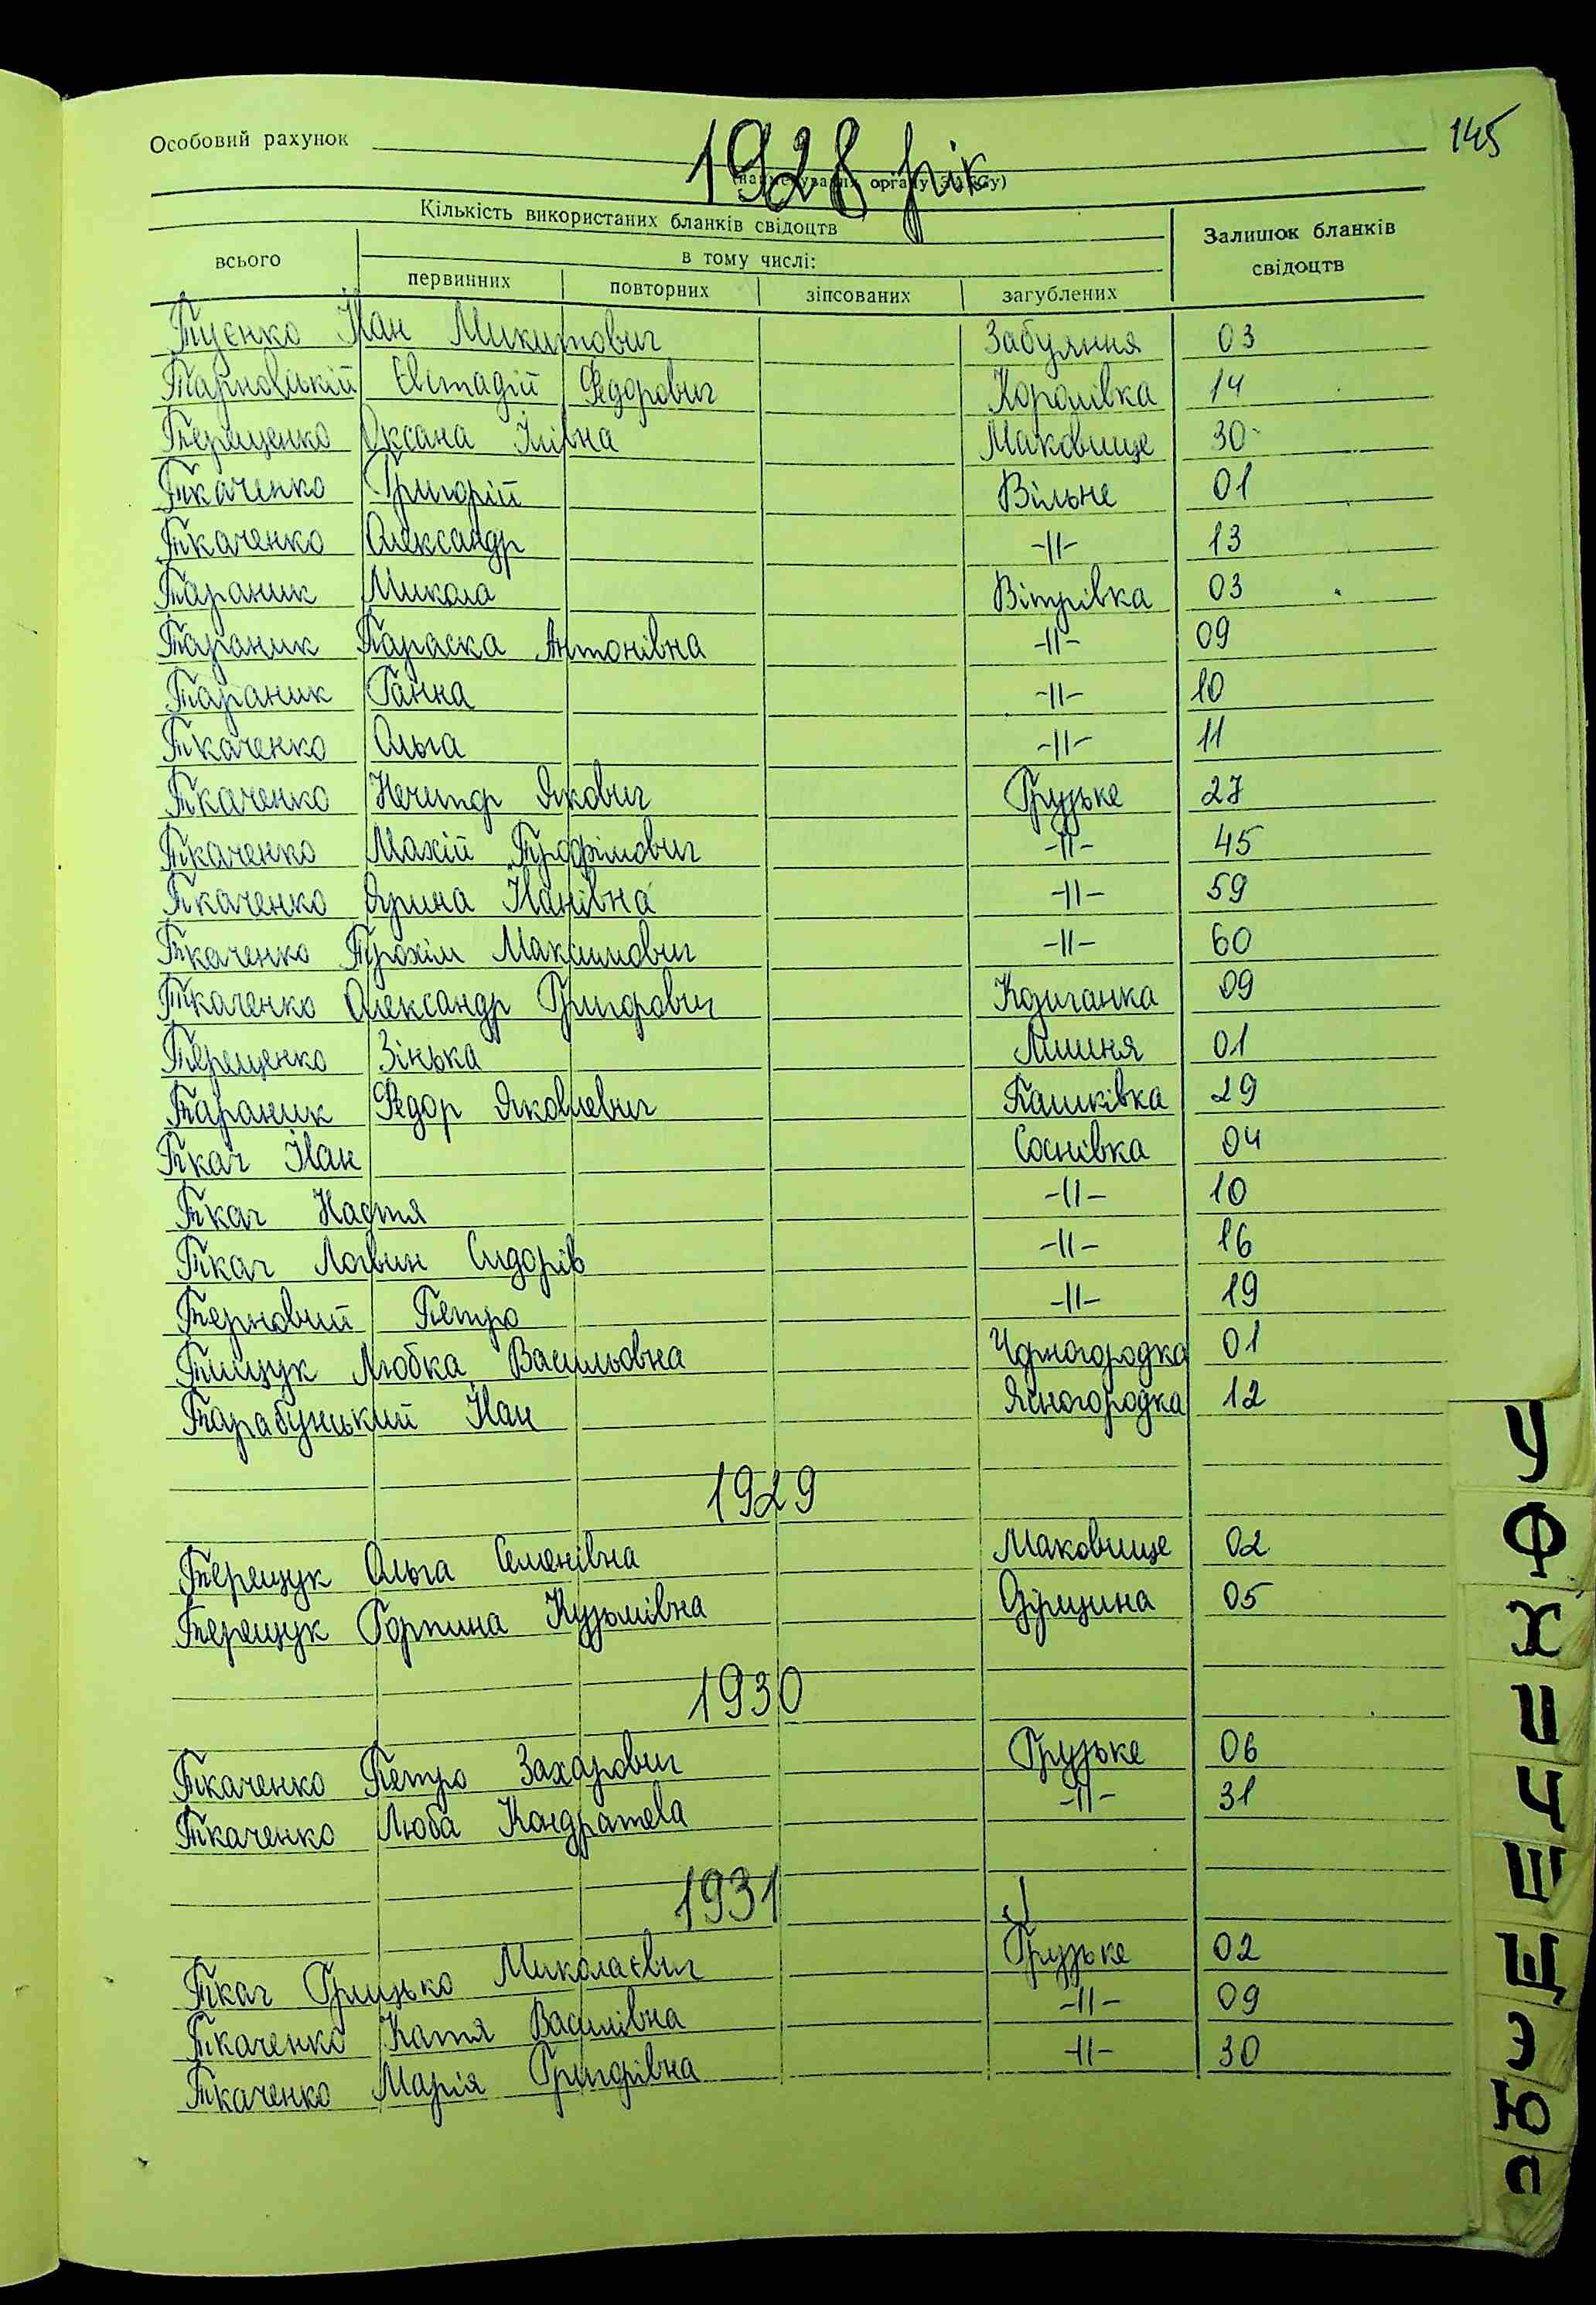 145
Особовий рахунок
1928 рік
Кількість використаних бланків свідоцтв
Залишок бланків свідоцтв
всього
в тому числі:
первинних повторних зіпсованих загублених
Туєнко Іван Микитович Забуяння 03
Тарновський Євстафій Федорович Королівка 14
Терещенко Оксана Іллівна Маковище 30
Ткаченко Григорій Вільне 01
Ткаченко Олександр -//- 13
Тараник Микола Вітрівка 03
Тараник Параска Антонівна -//- 09
Тараник Ганна -//- 10
Ткаченко Ольга -//- 11
Ткаченко Нечипір Якович Грузьке 27
Ткаченко Мокій Трофімович -//- 45
Ткаченко Ярина Іванівна -//- 59
Ткаченко Трохім Максимович -//- 60
Ткаченко Олександр Григорович Козичанка 09
Терещенко Зінька Лишня 01
Тараник Федор Яковлевич Пашківка 29
Ткач Іван Соснівка 04
Ткач Настя -//- 10
Ткач Логвин Сидорів -//- 16
Терновий Петро -//- 19
Тищук Любка Васильовна Чорногородка 01
Тарабунький Іван Ясногородка 12
1929
Терещук Ольга Семенівна Маковище 02
Терещук Горпина Кузьмівна Озірщина 05
1930
Ткаченко Петро Захарович Грузьке 06
Ткаченко Люба Кондратева -//- 31
1931
Ткач Грицько Миколаєвич Грузьке 02
Ткаченко Катя Василівна -//- 09
Ткаченко Марія Григорівна -//- 30
У
Ф
Х
Ц
Ч
Ш
Щ
Э
Ю
Я